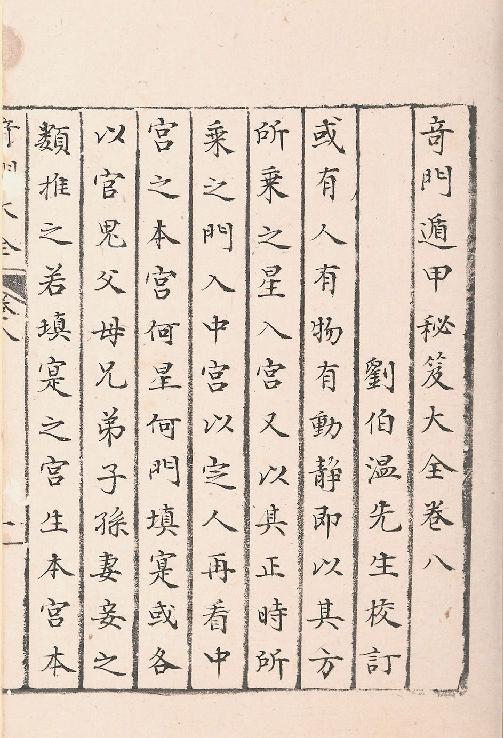 奇門遁甲秘笈大全卷八
劉伯温先生校訂
或有人有物有動靜即以其方
所乗之星入宫又以其正時所
乗之門入中宫以定人再看中
宫之本宫何星何門填寔或各
以官鬼父母兄弟子孫妻妾之
類推之若填寔之宫生本宫本
奇門大全 卷八 一